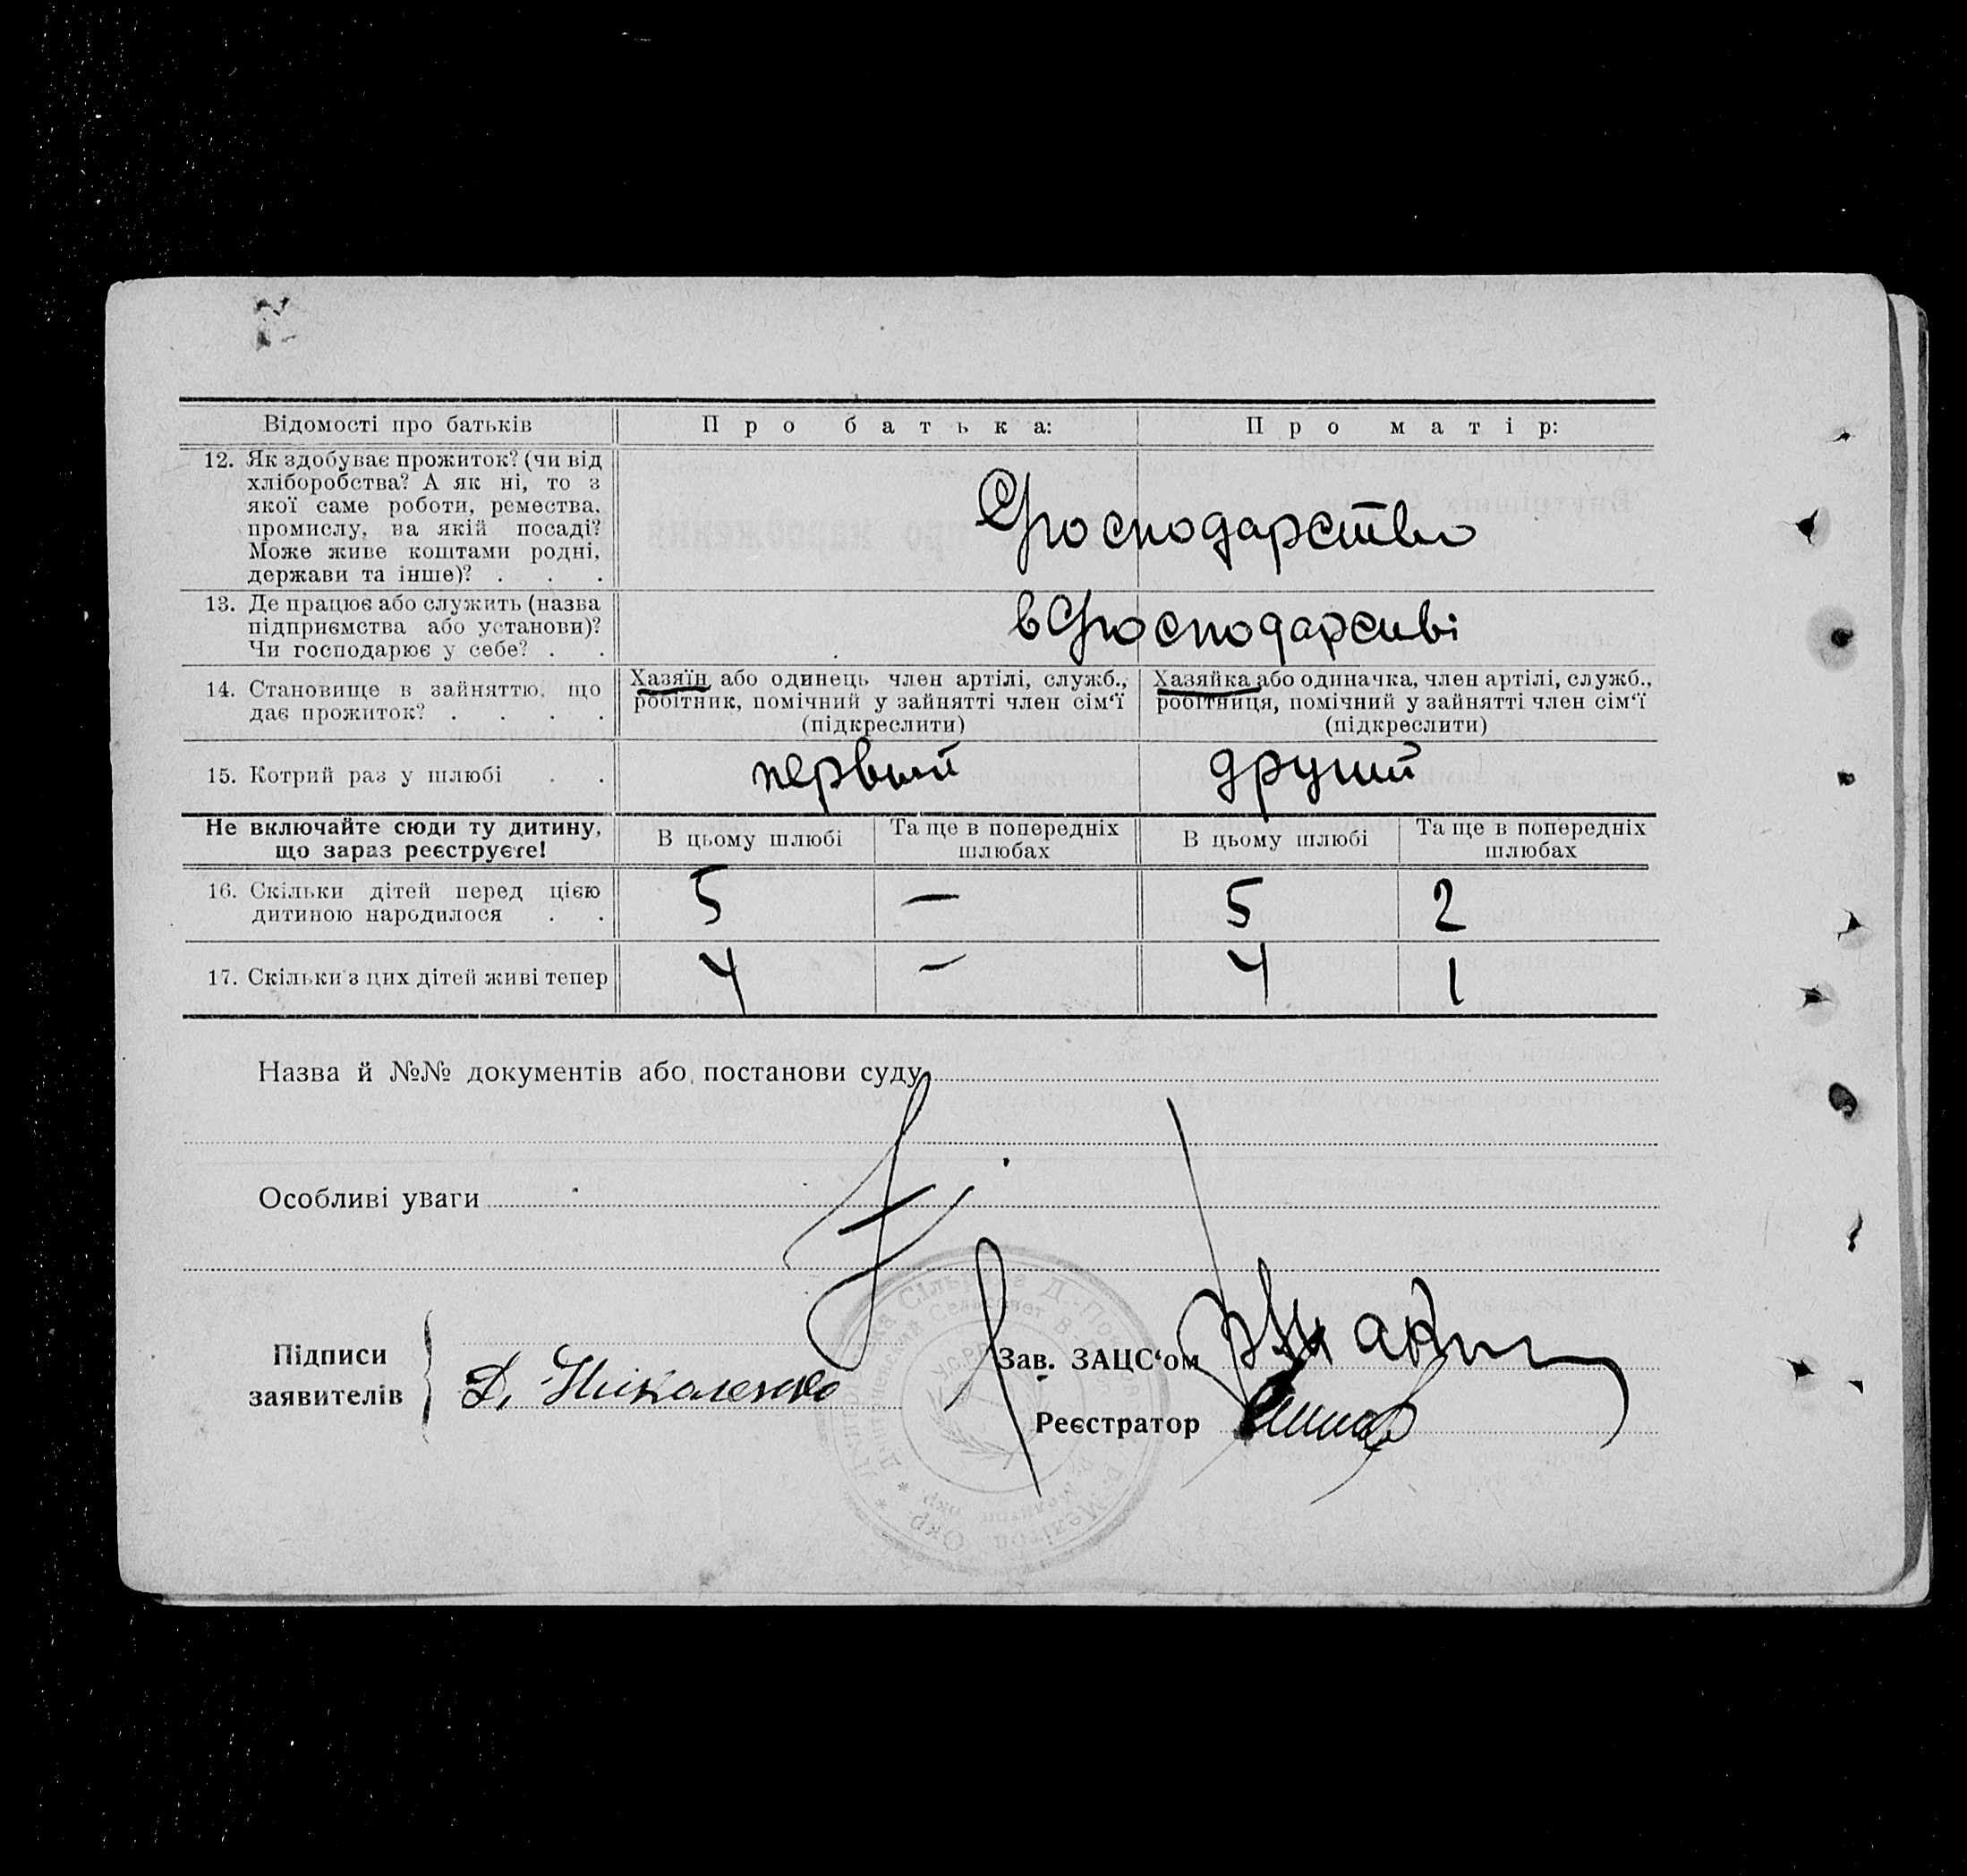 Відомості про батьків
Про батька:
Про матір:
12. Як здобуває прожиток? (чи від
хліборобства? А як ні, то з
якої саме роботи, ремества,
промислу, на якій посаді?
Може живе коштами родні,
держави та інше)? . . .
Господарство
13. Де працює або служить (назва
підприємства або установи)?
Чи господарює у себе? . .
в Господарсиві
14. Становище в зайняттю, що
дає прожиток? . . . .
Хазяїн або одинець член артілі, служб.,
робітник, помічний у зайнятті член сім'ї
(підкреслити)
Хазяйка або одиначка, член артілі, служб.,
робітниця, помічний у зайнятті член сім'ї
(підкреслити)
15. Котрий раз у шлюбі . .
первый
другий
Не включайте сюди ту дитину,
що зараз реєструєте!
В цьому шлюбі
Та ще в попередніх
шлюбах
В цьому шлюбі
Та ще в попередніх
шлюбах
16. Скільки дітей перед цією
дитиною народилося . .
5
—
5
2
17. Скільки з цих дітей живі тепер
4
—
4
1
Назва й №№ документів або постанови суду
Особливі уваги
Підписи
заявителів
Д. Ніколенко
Зав. ЗАЦС'ом
Реєстратор